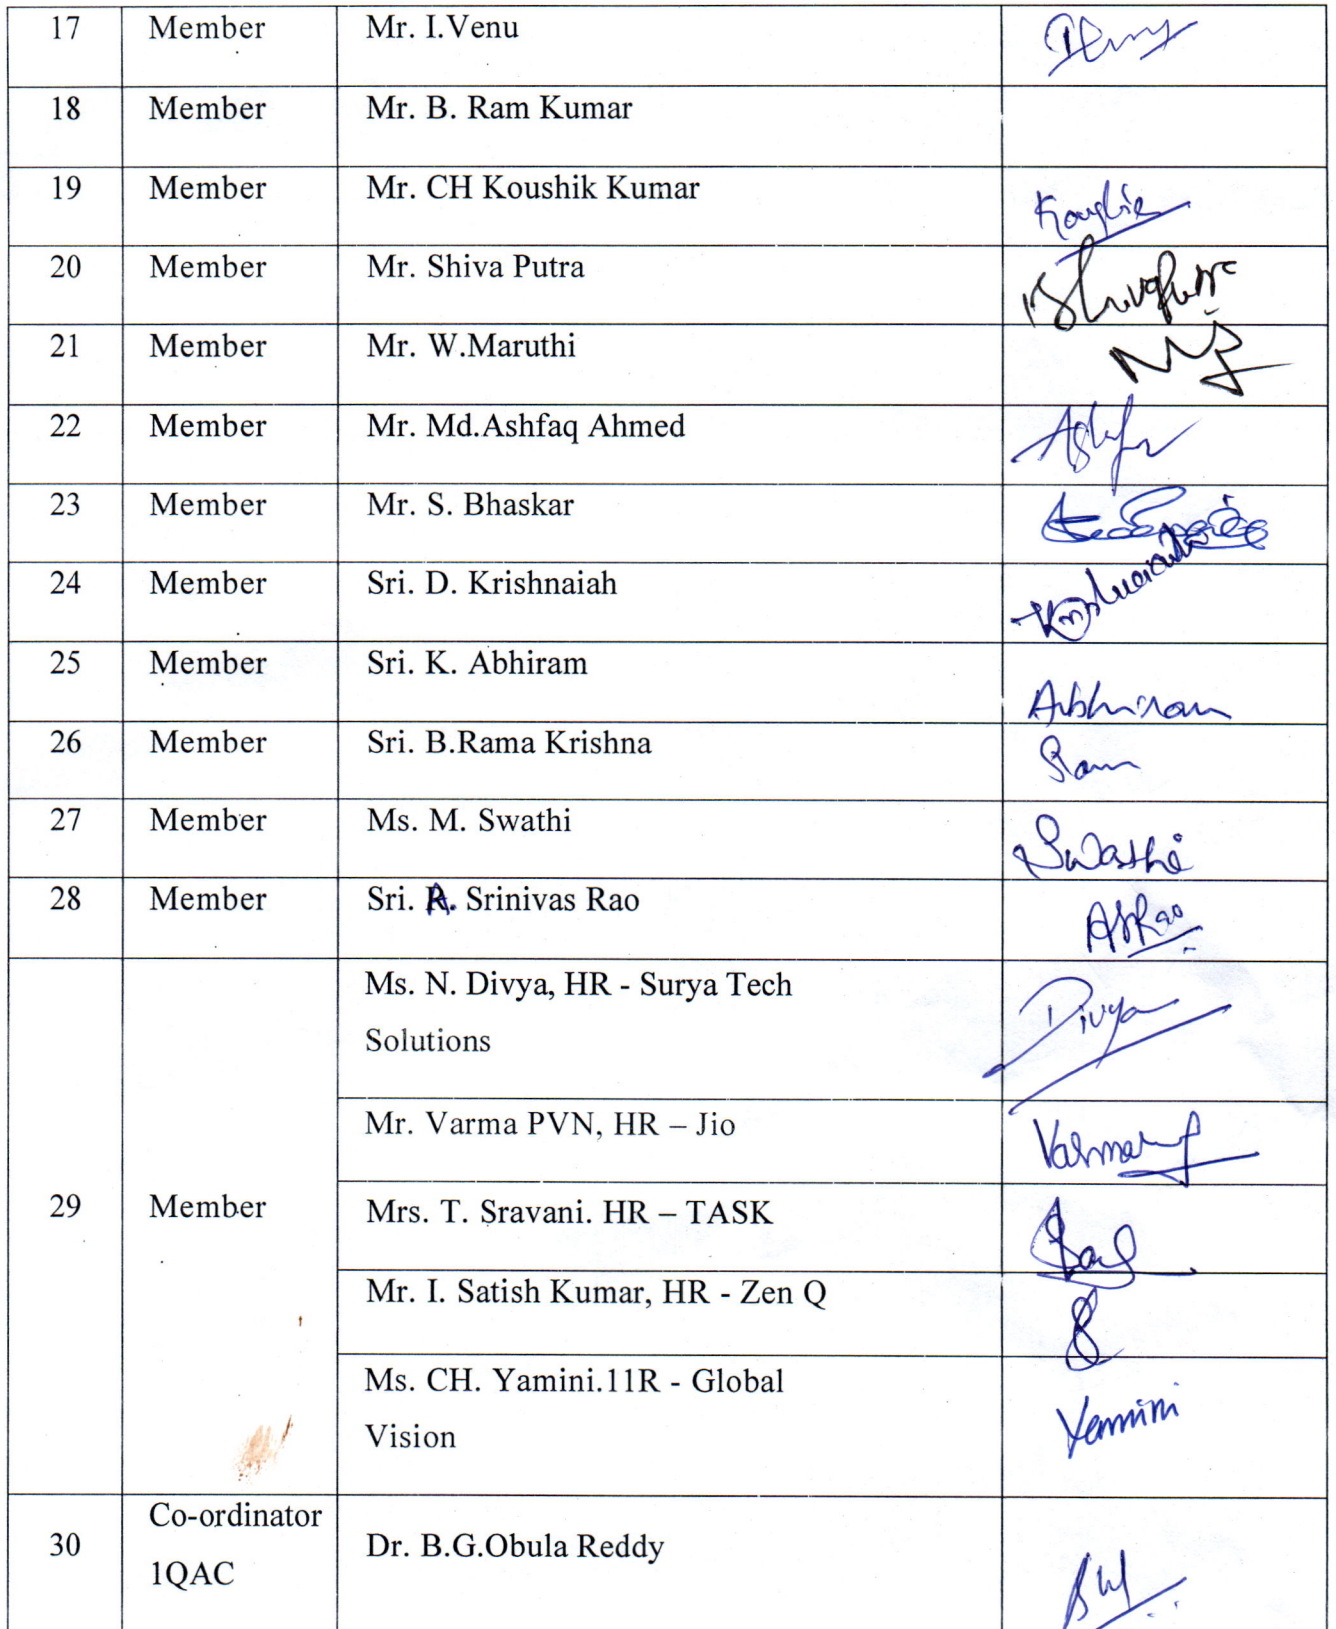 17 Member Mr. I.Venu
18 Member Mr. B. Ram Kumar
19 Member Mr. CH Koushik Kumar
20 Member Mr. Shiva Putra
21 Member Mr. W.Maruthi
22 Member Mr. Md.Ashfaq Ahmed
23 Member Mr. S. Bhaskar
24 Member Sri. D. Krishnaiah Krishnaiah
25 Member Sri. K. Abhiram Abhiram
26 Member Sri. B.Rama Krishna Ram
27 Member Ms. M. Swathi Swathi
28 Member Sri. A. Srinivas Rao ASRao
Ms. N. Divya, HR - Surya Tech Divya
Solutions
Mr. Varma PVN, HR – Jio Varma
29 Member Mrs. T. Sravani. HR – TASK
Mr. I. Satish Kumar, HR - Zen Q
Ms. CH. Yamini.11R - Global Yamini
Vision
Co-ordinator
30 Dr. B.G.Obula Reddy
1QAC